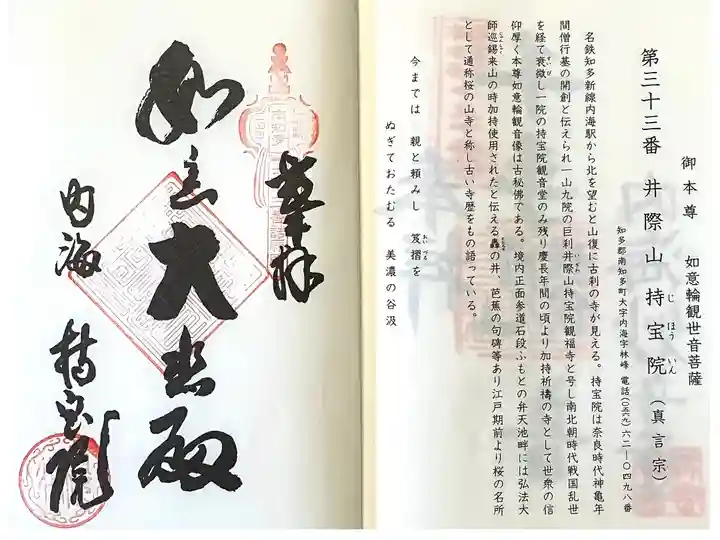 御本尊 如意輪観世音菩薩
第三十三番 井際山 持宝院（真言宗）
じほういん
知多郡南知多町大字内海字林峰 電話（〇五六九）六二―〇四九八番
名鉄知多新線内海駅から北を望むと山復に古刹の寺が見える。持宝院は奈良時代神亀年
間僧行基の開創と伝えられ一山九院の巨刹井際山持宝院観福寺と号し南北朝時代戦国乱世
を経て衰微し一院の持宝院観音堂のみ残り慶長年間の頃より加持祈禱の寺として世衆の信
仰厚く本尊如意輪観音像は古秘佛である。境内正面参道石段ふもとの弁天池畔には弘法大
師巡錫来山の時加持使用されたと伝える の井、芭蕉の句碑等あり江戸期前より桜の名所
として通称桜の山寺と称し古い寺歴をもの語っている。
今までは 親と頼みし 笈摺を
おいづる
ぬぎておたむる 美濃の谷汲
奉拝
如意 大悲殿
内海 持宝院